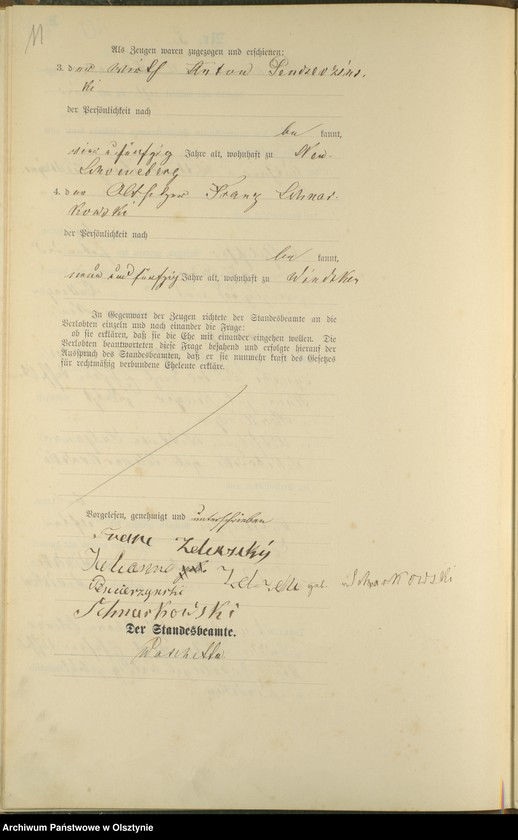 11
Als Zeugen waren zugezogen und erschienen:
3. der Wirth Anton
ki
der Persönlichkeit nach
be kannt,
ein u fünfzig Jahre alt, wohnhaft zu Neu
Schoeneberg
4. der Altsitzer Franz Schnar
kowski
der Persönlichkeit nach
be kannt,
neun und fünfzig Jahre alt, wohnhaft zu
In Gegenwart der Zeugen richtete der Standesbeamte an die
Verlobten einzeln und nach einander die Frage:
ob sie erklären, daß sie die Ehe mit einander eingehen wollen. Die
Verlobten beantworteten diese Frage bejahend und erfolgte hierauf der
Ausspruch des Standesbeamten, daß er sie nunmehr kraft des Gesetzes
für rechtmäßig verbundene Eheleute erkläre.
Vorgelesen, genehmigt und unterschrieben
Franz
geb. Schnarkowski
Schnarkowski
Der Standesbeamte.
Archiwum Państwowe w Olsztynie